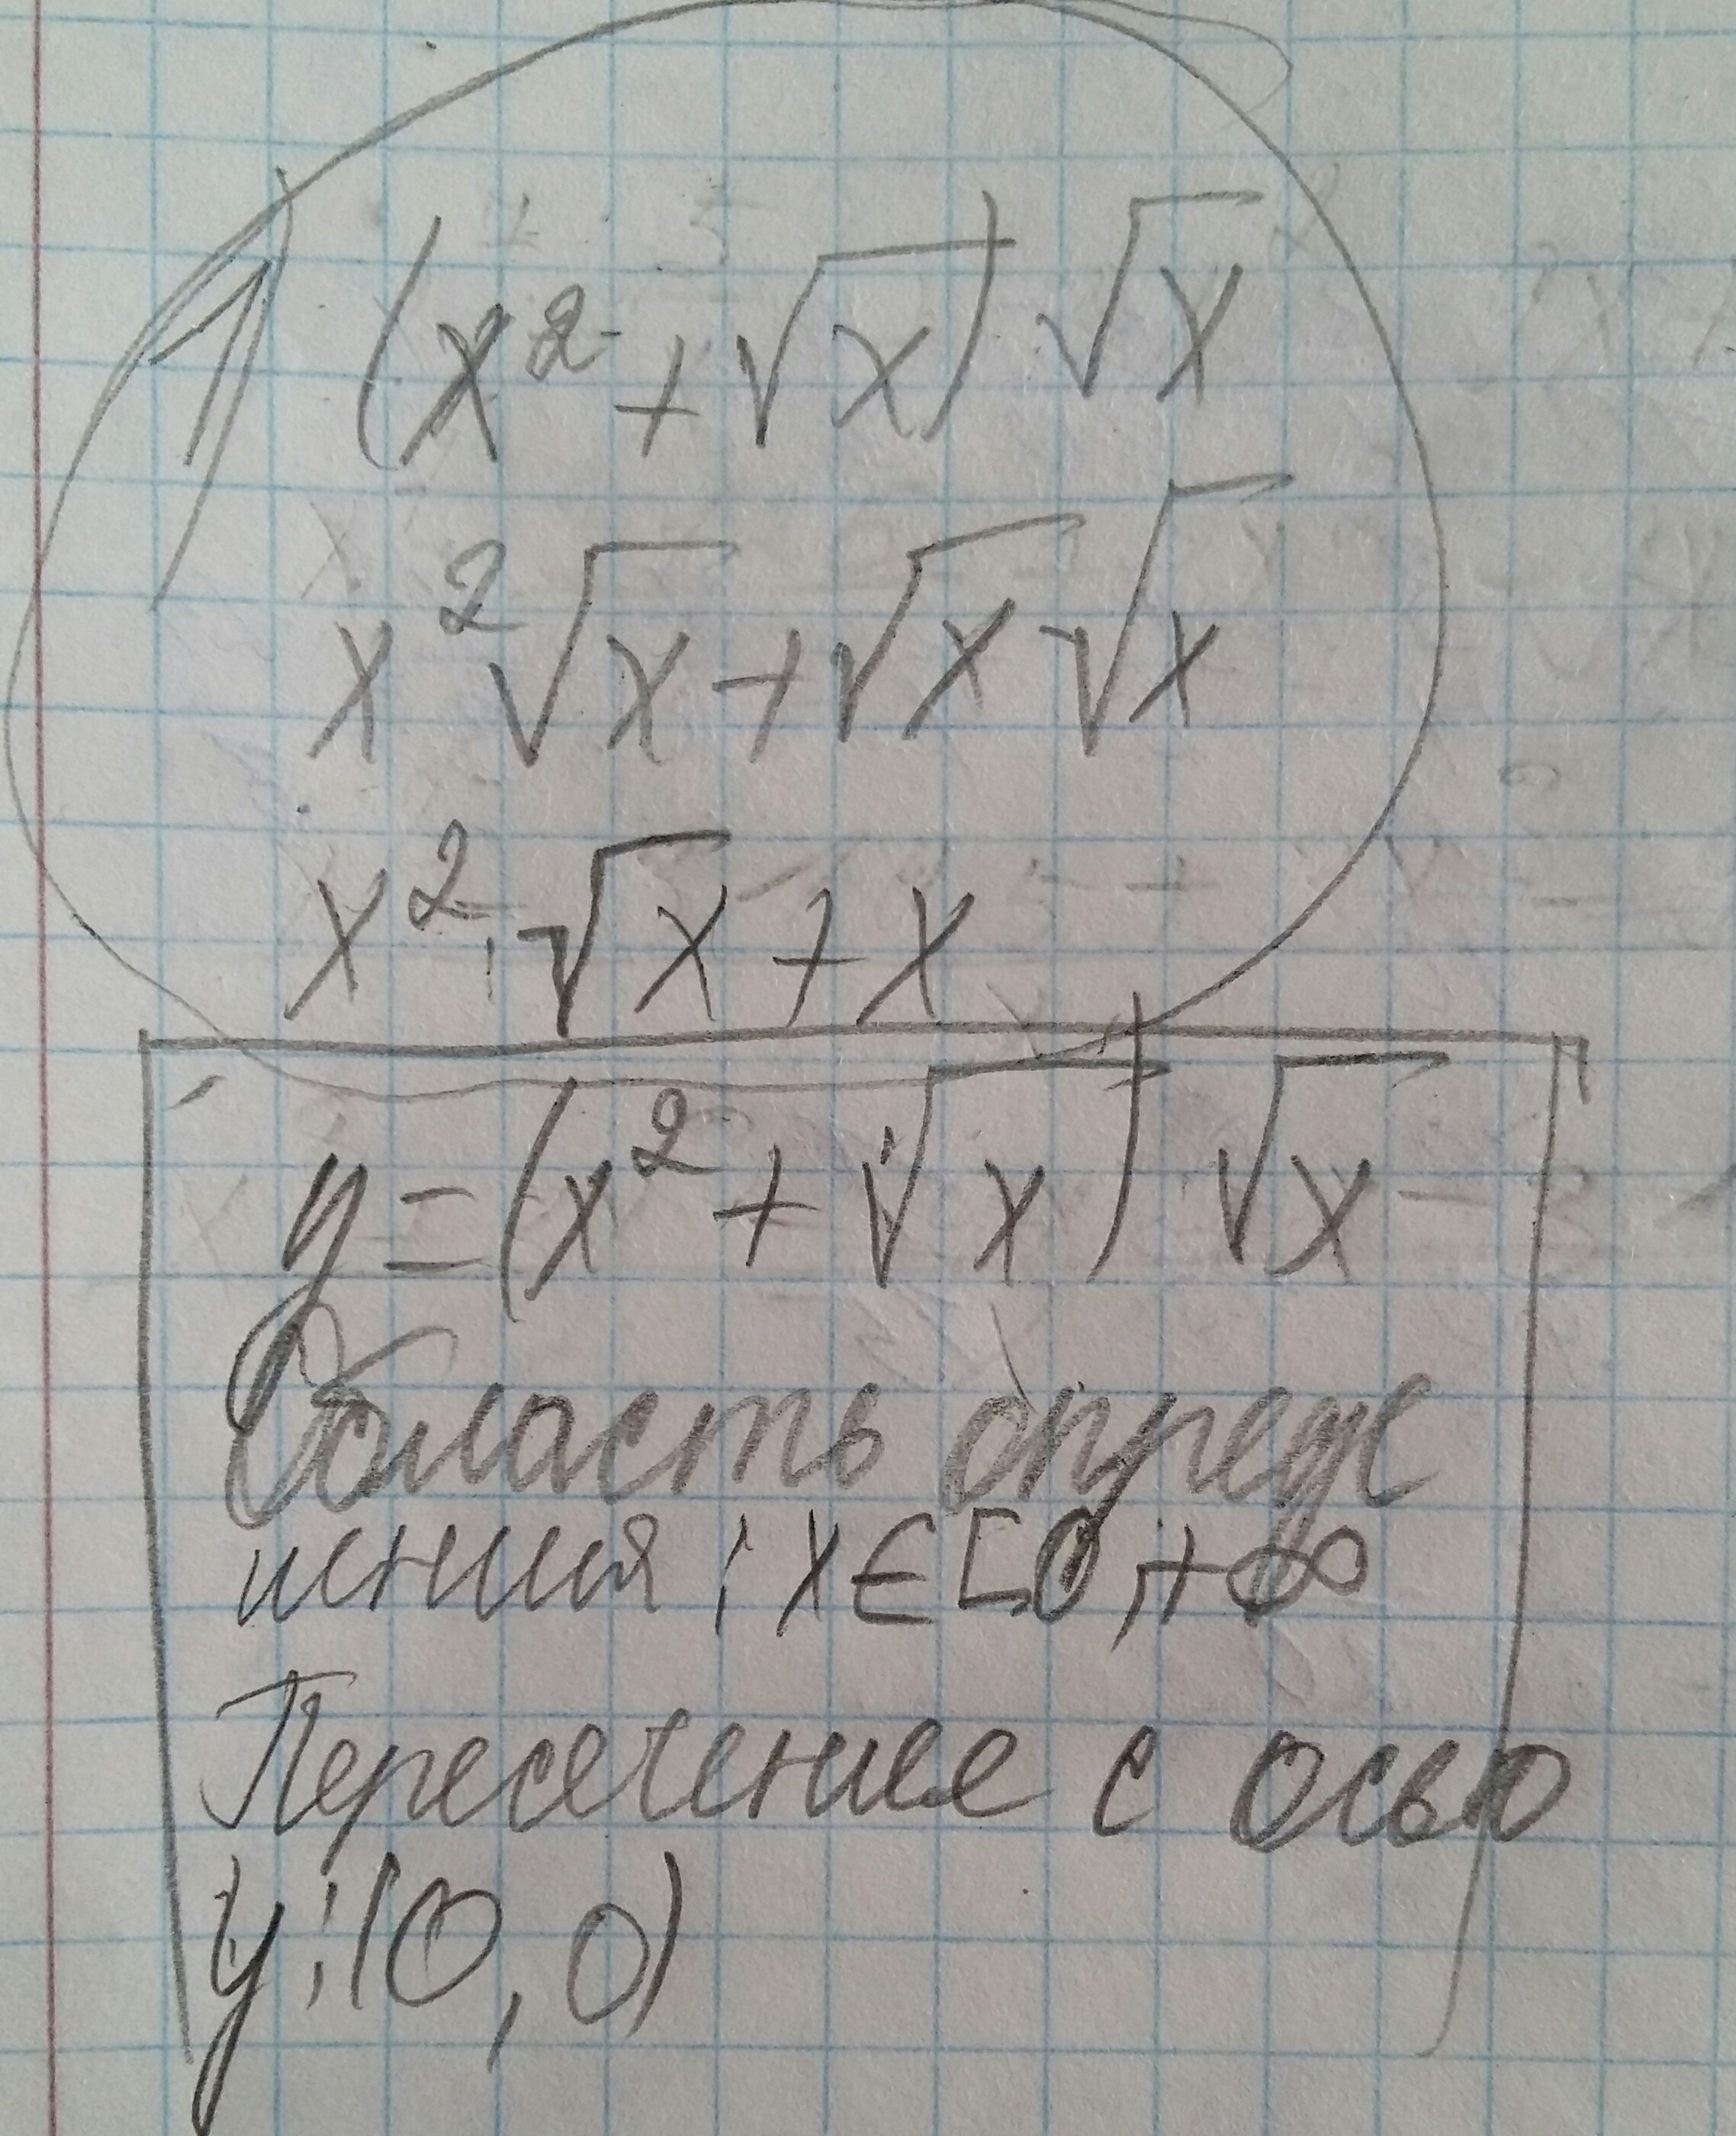 1) (x² + √x) √x
x² √x + √x √x
x² · √x + x
y = (x² + √x) √x
Область опреде
ления: x ∈ [0, +∞
Пересечение с осью
y: (0, 0)